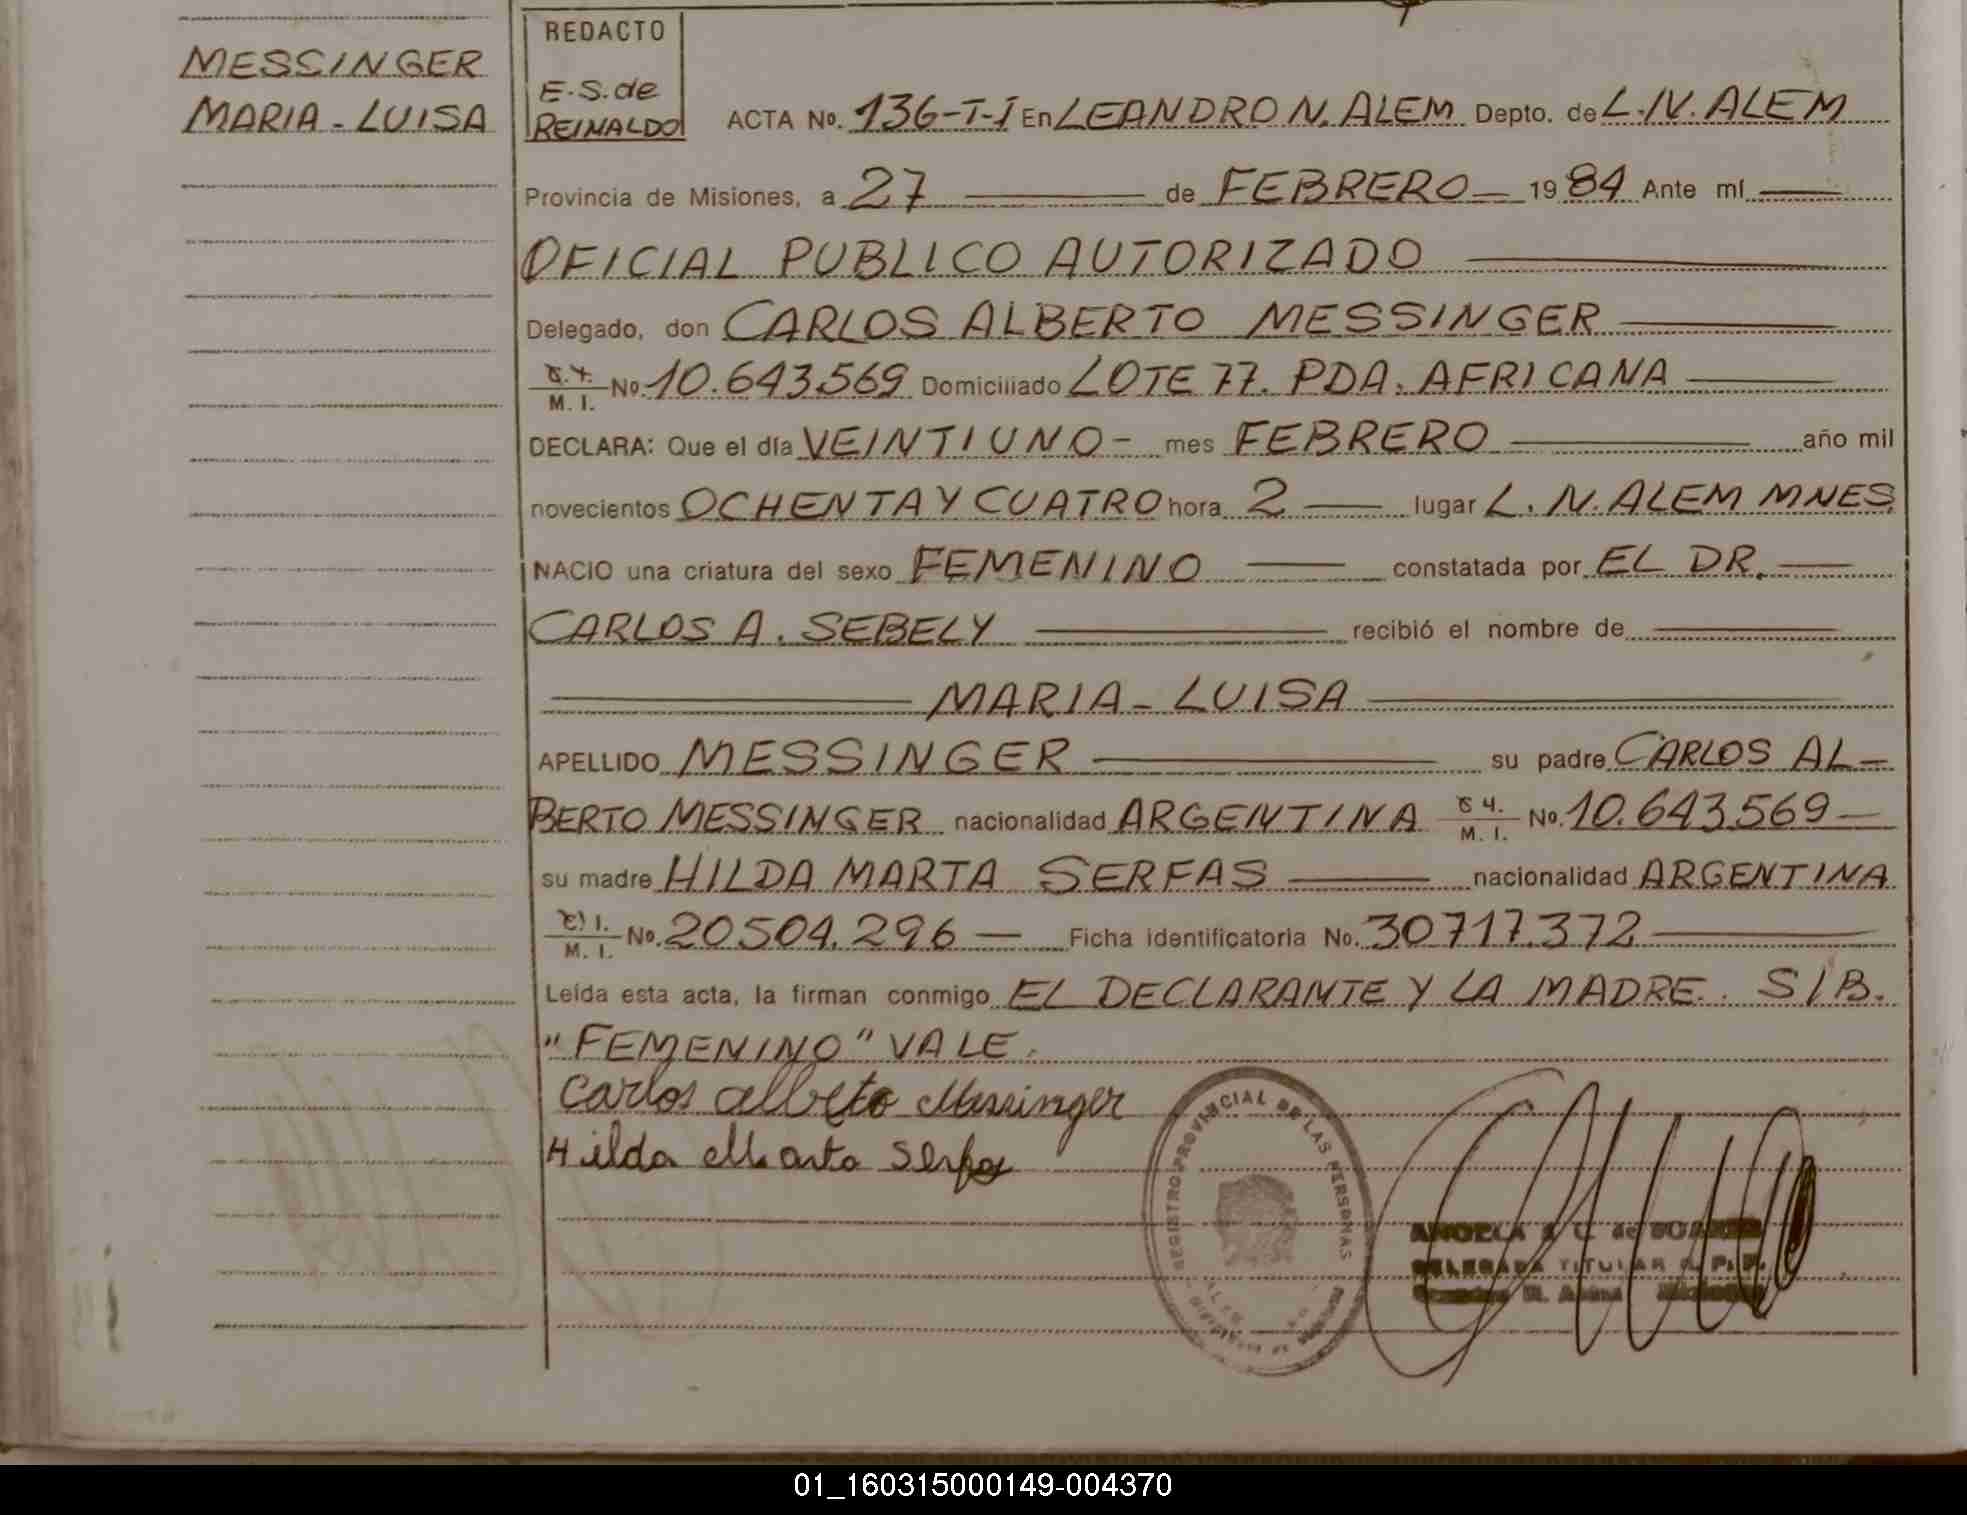 MESSINGER
MARIA - LUISA
REDACTO
E.S. de
REINALDO
ACTA No. 136-T-I En LEANDRO N. ALEM Depto. de L.N. ALEM
Provincia de Misiones, a 27 de FEBRERO 1984 Ante mí
OFICIAL PUBLICO AUTORIZADO
Delegado, don CARLOS ALBERTO MESSINGER
M. I. No. 10.643.569 Domiciliado LOTE 77. PDA. AFRICANA
DECLARA: Que el día VEINTIUNO - mes FEBRERO año mil
novecientos OCHENTA Y CUATRO hora 2 lugar L. N. ALEM MNES
NACIO una criatura del sexo FEMENINO constatada por EL DR.
CARLOS A. SEBELY recibió el nombre de
MARIA - LUISA
APELLIDO MESSINGER su padre CARLOS AL-
BERTO MESSINGER nacionalidad ARGENTINA M. I. No. 10.643.569
su madre HILDA MARTA SERFAS nacionalidad ARGENTINA
M. I. No. 20504.296 Ficha identificatoria No. 30717.372
Leída esta acta, la firman conmigo EL DECLARANTE Y LA MADRE. S/B.
"FEMENINO" VALE.
Carlos Alberto Messinger
Hilda Marta Serfas
REGISTRO PROVINCIAL DE LAS PERSONAS
DELEGADA TITULAR
01_160315000149-004370